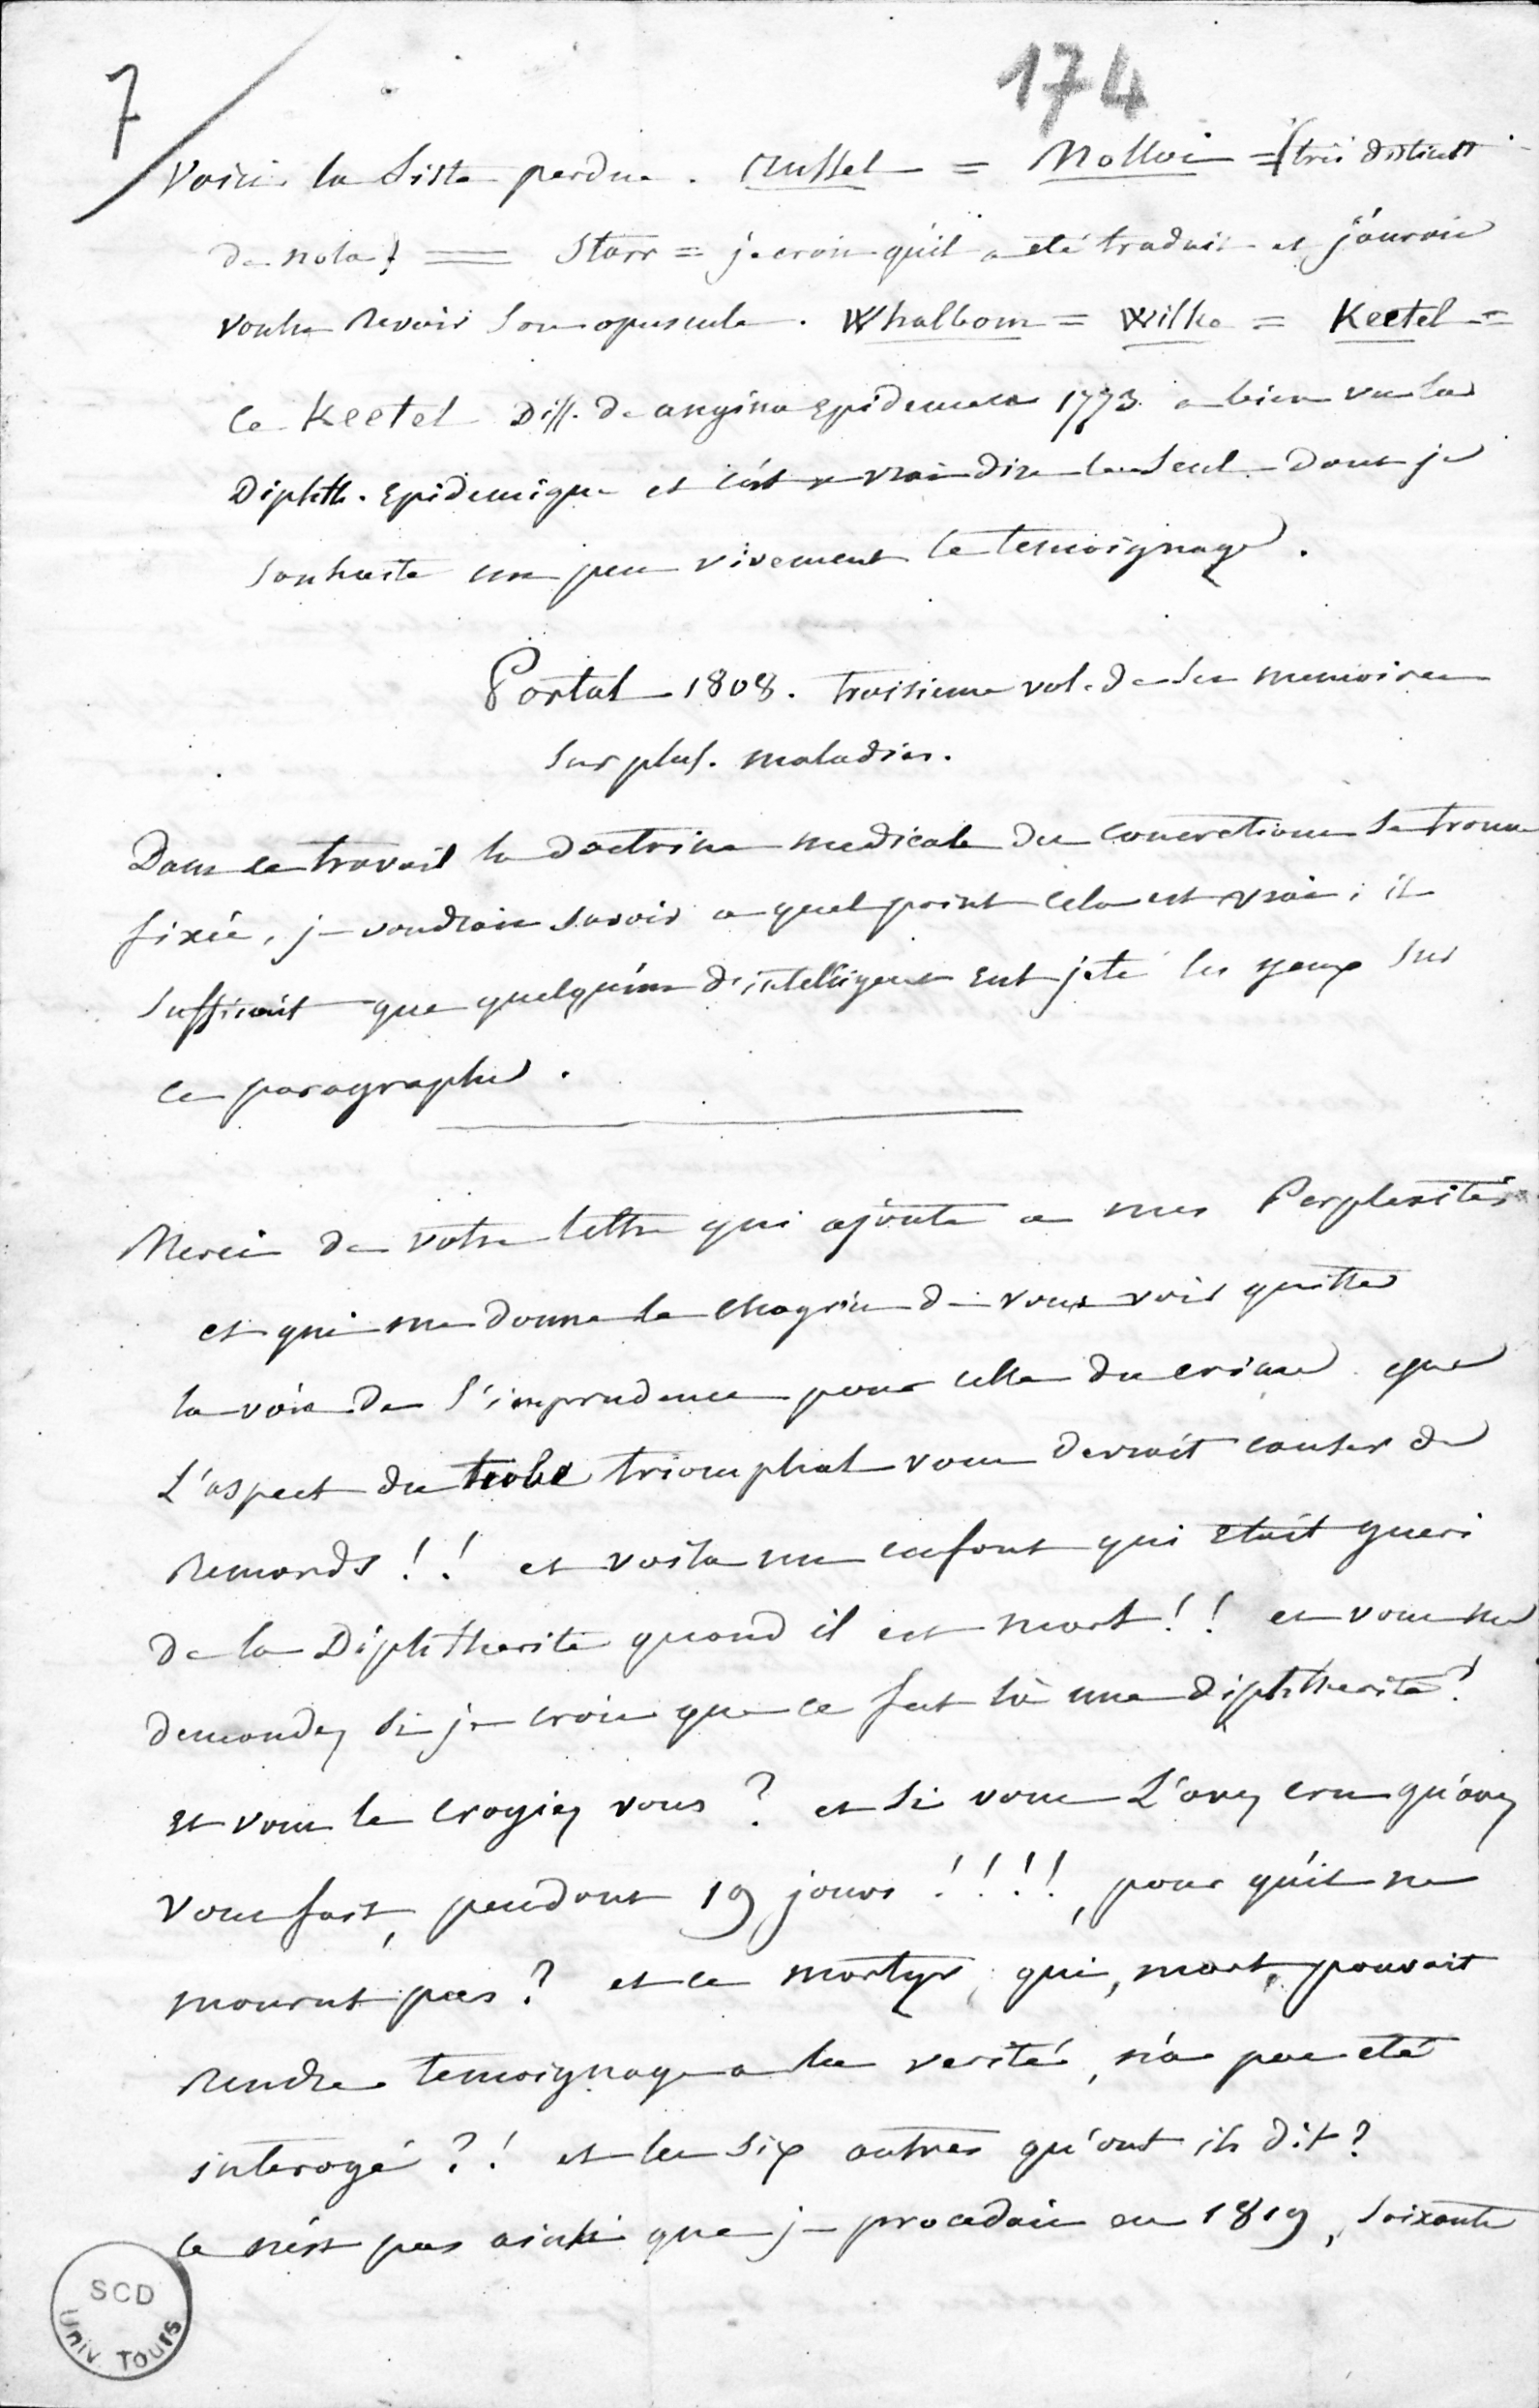 7
174
Voici la Liste perdue. Russel = Molloi = (tres distinct
de nola) = Starr = je crois qu'il a eté traduit et j'aurois
voulu revoir son opuscule. Whalbom = Wilke = Keetel =
ce Keetel Diss. de angina Epidemica 1773. a bien vu la
Diphth. Epidemique et c'est a vrai dire le seul dont je
souhaite un peu vivement le temoignage.
Portal 1808. troisieme vol. de ses memoires
sur plus. maladies.
Dans ce travail la doctrine medicale des concretions se trouve
fixée, je voudrois savoir a quel point cela est vrai; il
suffiroit que quelqu'un d'intelligent eut jeté les yeux sur
ce paragraphe.
Merci de votre lettre qui ajoute a mes Perplexités
et qui me donne le chagrin de vous voir quitter
la voie de l'imprudence pour celle du crime que
L'aspect du triomphal vous devroit causer de
remords!! et voila un enfant qui etait gueri
de la Diphtherite quand il est mort!! et vous me
demandez si je crois que ce fut là une diphtherite?
et vous le croyiez vous? et si vous L'avez cru qu'avez
vous fait, pendant 19 jours!!!!, pour qu'il ne
mourut pas? et ce martyr, qui, mort, pouvait
rendre temoignage a la verité, n'a pas eté
interogé?! et les six autres qu'ont ils dit?
ce n'est pas ainsi que je procedois en 1819, soixante
SCD
Univ. TOURS